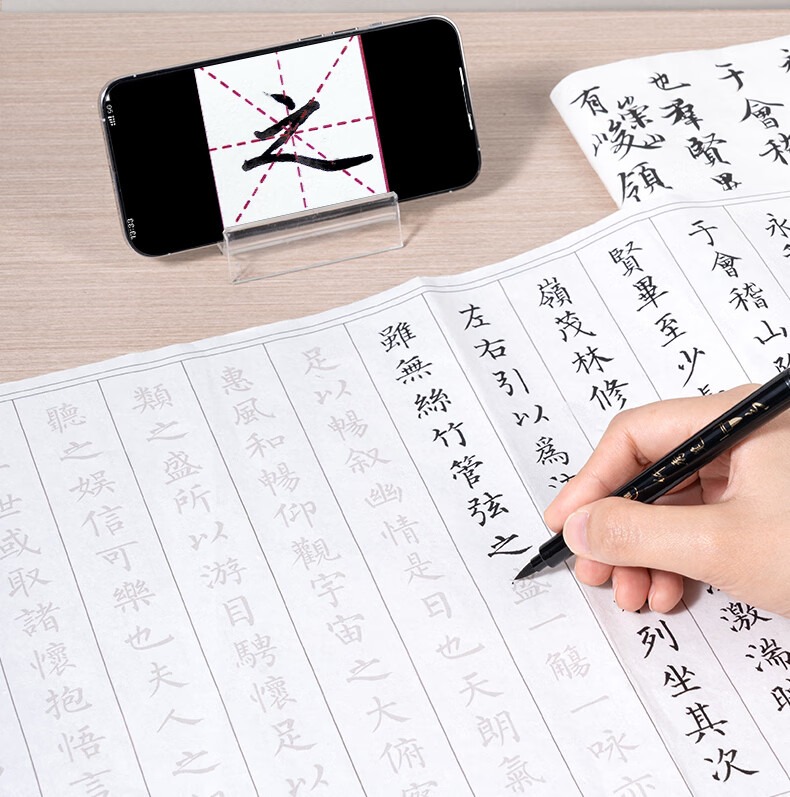 之
13:33
永
于會稽
也羣賢畢
有崇山峻領
永
于會稽山
賢畢至少長
嶺茂林修
激湍映
左右引以爲流
列坐其次
雖無絲竹管弦之盛一觴一詠亦
足以暢叙幽情是日也天朗氣
惠風和暢仰觀宇宙之大俯察
類之盛所以游目騁懷足以
聽之娛信可樂也夫人之
世或取諸懷抱悟言